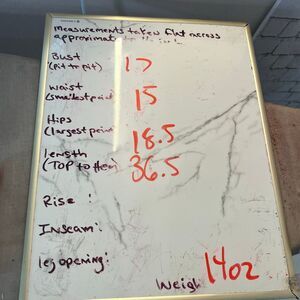 measurements taken flat across
approximat
Bust
(pit to pit) 17
waist
(smallest point 15
Hips
(largest point 18.5
length
(TOP to Hem) 36.5
Rise :
Inseam :
leg opening :
Weigh 14oz